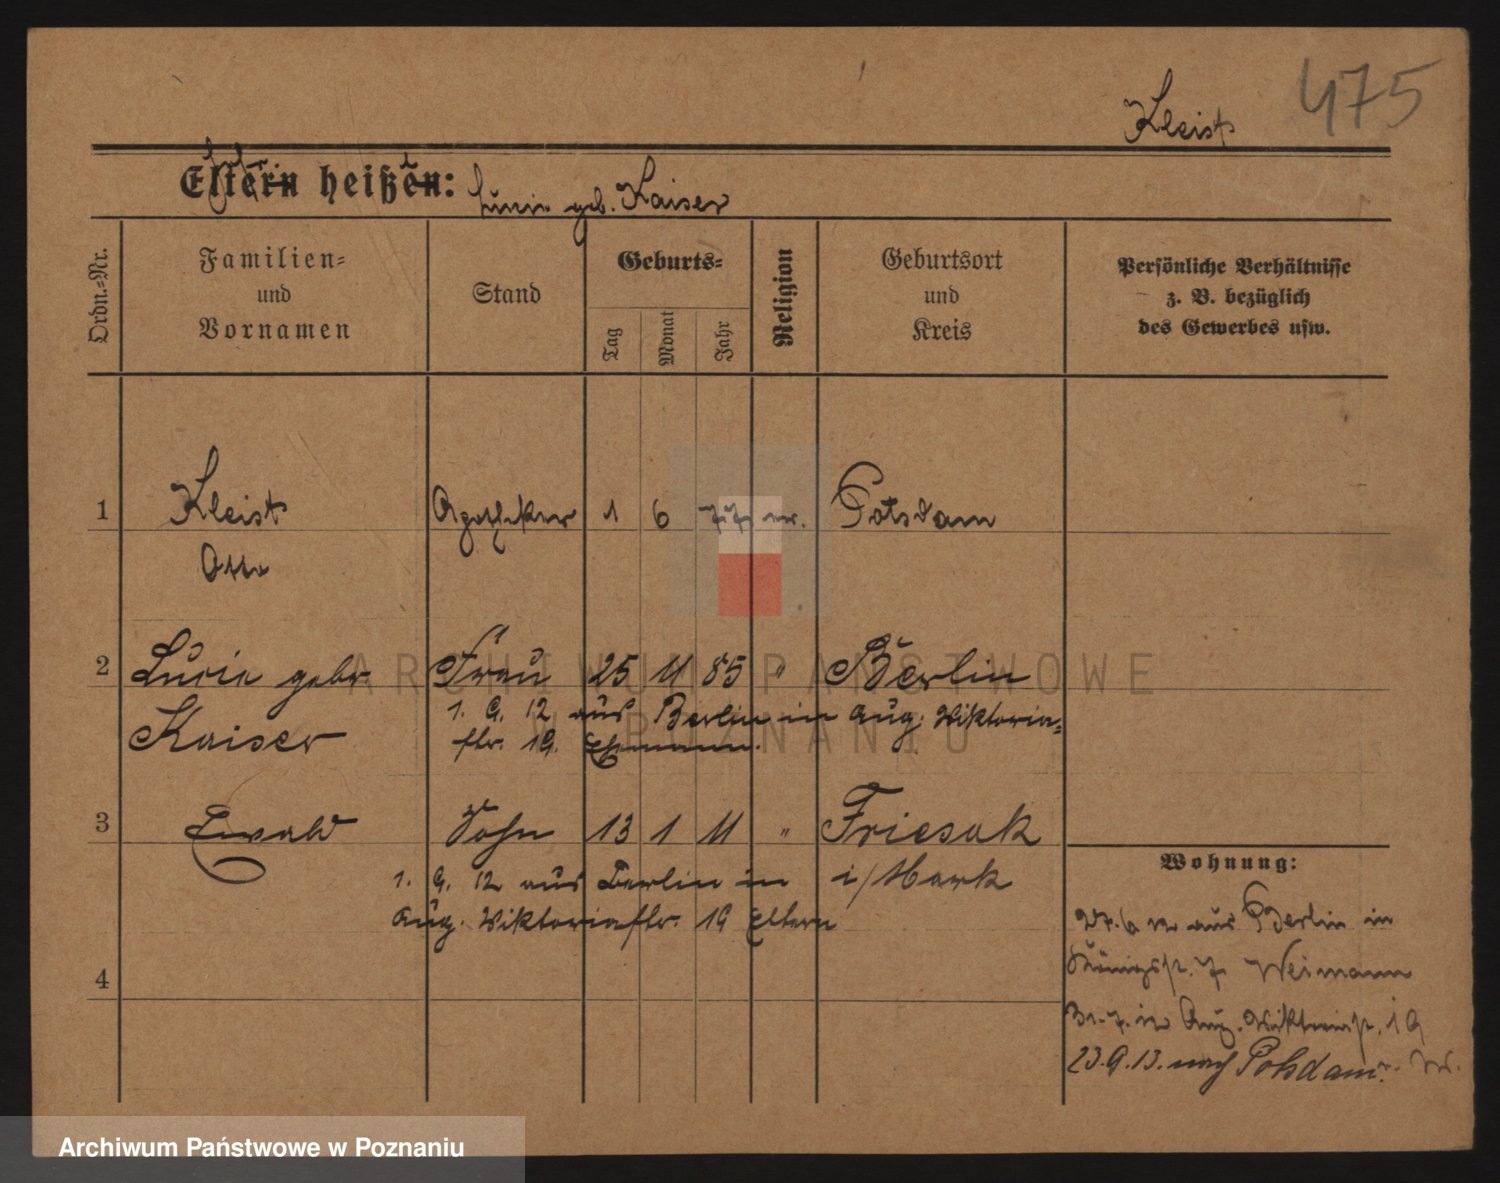 475
Kleist
Eltern heißen: Lucie geb. Kaiser
Ordn.-Nr.
Familien-
und
Vornamen
Stand
Geburts-
Tag
Monat
Jahr
Religion
Geburtsort
und
Kreis
Persönliche Verhältnisse
z. B. bezüglich
des Gewerbes usw.
1 Kleist Apotheker 1 6 77 ev. Potsdam
Otto
2 Lucie gebr. Frau 25 11 85 " Berlin
1. 9. 12 aus Berlin in Aug. Viktoria-
Kaiser str. 19. Ehemann.
3 Ewald Sohn 13 1 11 " Friesak
i/Mark
1. 9. 12 aus Berlin in
Aug. Viktoriastr. 19 Eltern
4
Wohnung:
27.6 12 aus Berlin in
Königspl. 7 Weimann
31.7.12 Aug. Viktoriastr. 19
23.9.13. nach Potsdam.
ARCHIWUM PAŃSTWOWE
W POZNANIU
Archiwum Państwowe w Poznaniu